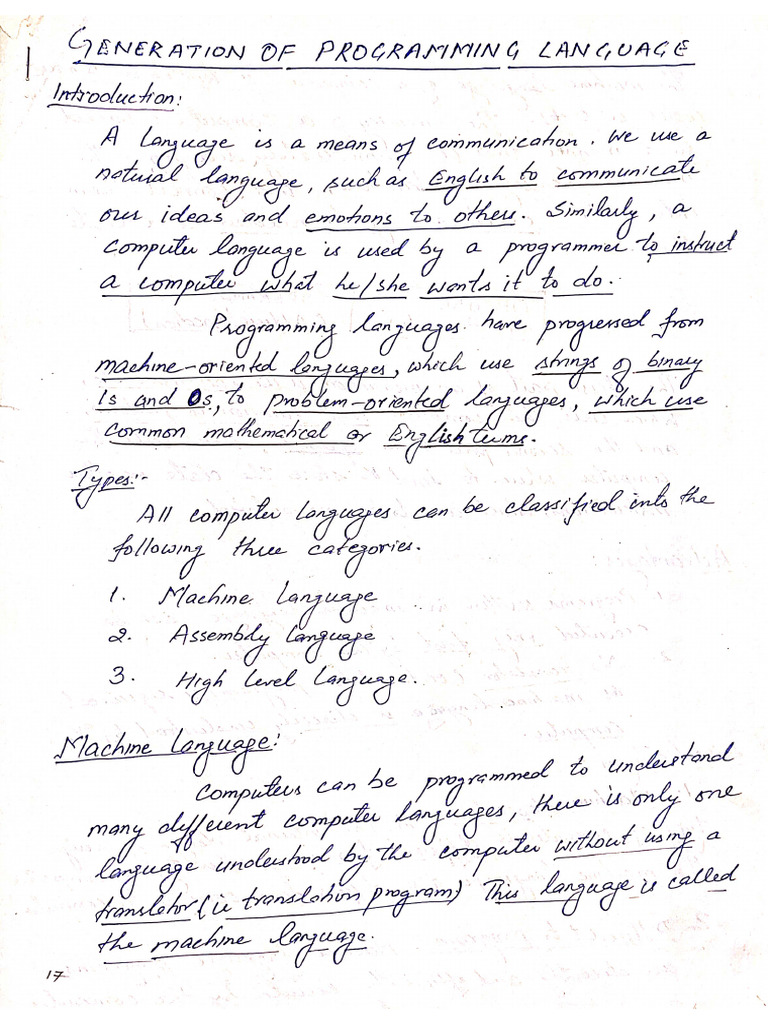 GENERATION OF PROGRAMMING LANGUAGE
Introduction:
A language is a means of communication. We use a
natural language, such as English to communicate
our ideas and emotions to others. Similarly, a
computer language is used by a programmer to instruct
a computer what he/she wants it to do.
Programming languages have progressed from
machine-oriented languages, which use strings of binary
1s and 0s, to problem-oriented languages, which use
common mathematical or English terms.
Types:-
All computer languages can be classified into the
following three categories.
1. Machine Language
2. Assembly Language
3. High Level Language.
Machine Language:
Computers can be programmed to understand
many different computer languages, there is only one
language understood by the computer without using a
translator (ie translation program) This language is called
the machine language.
17